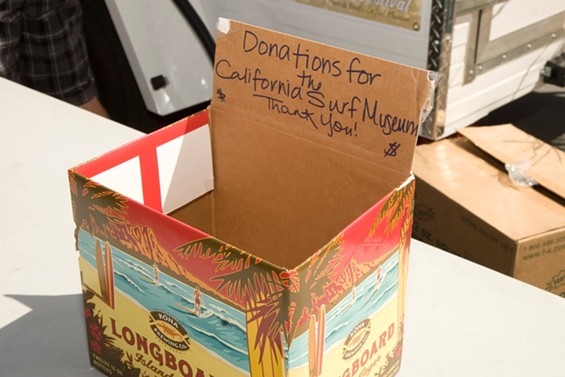 Donations for
the
California Surf Museum
Thank You!
$ $
KONA
BREWING CO.
LONGBOARD
Island
KONA
BREWING CO.
LONGBOARD